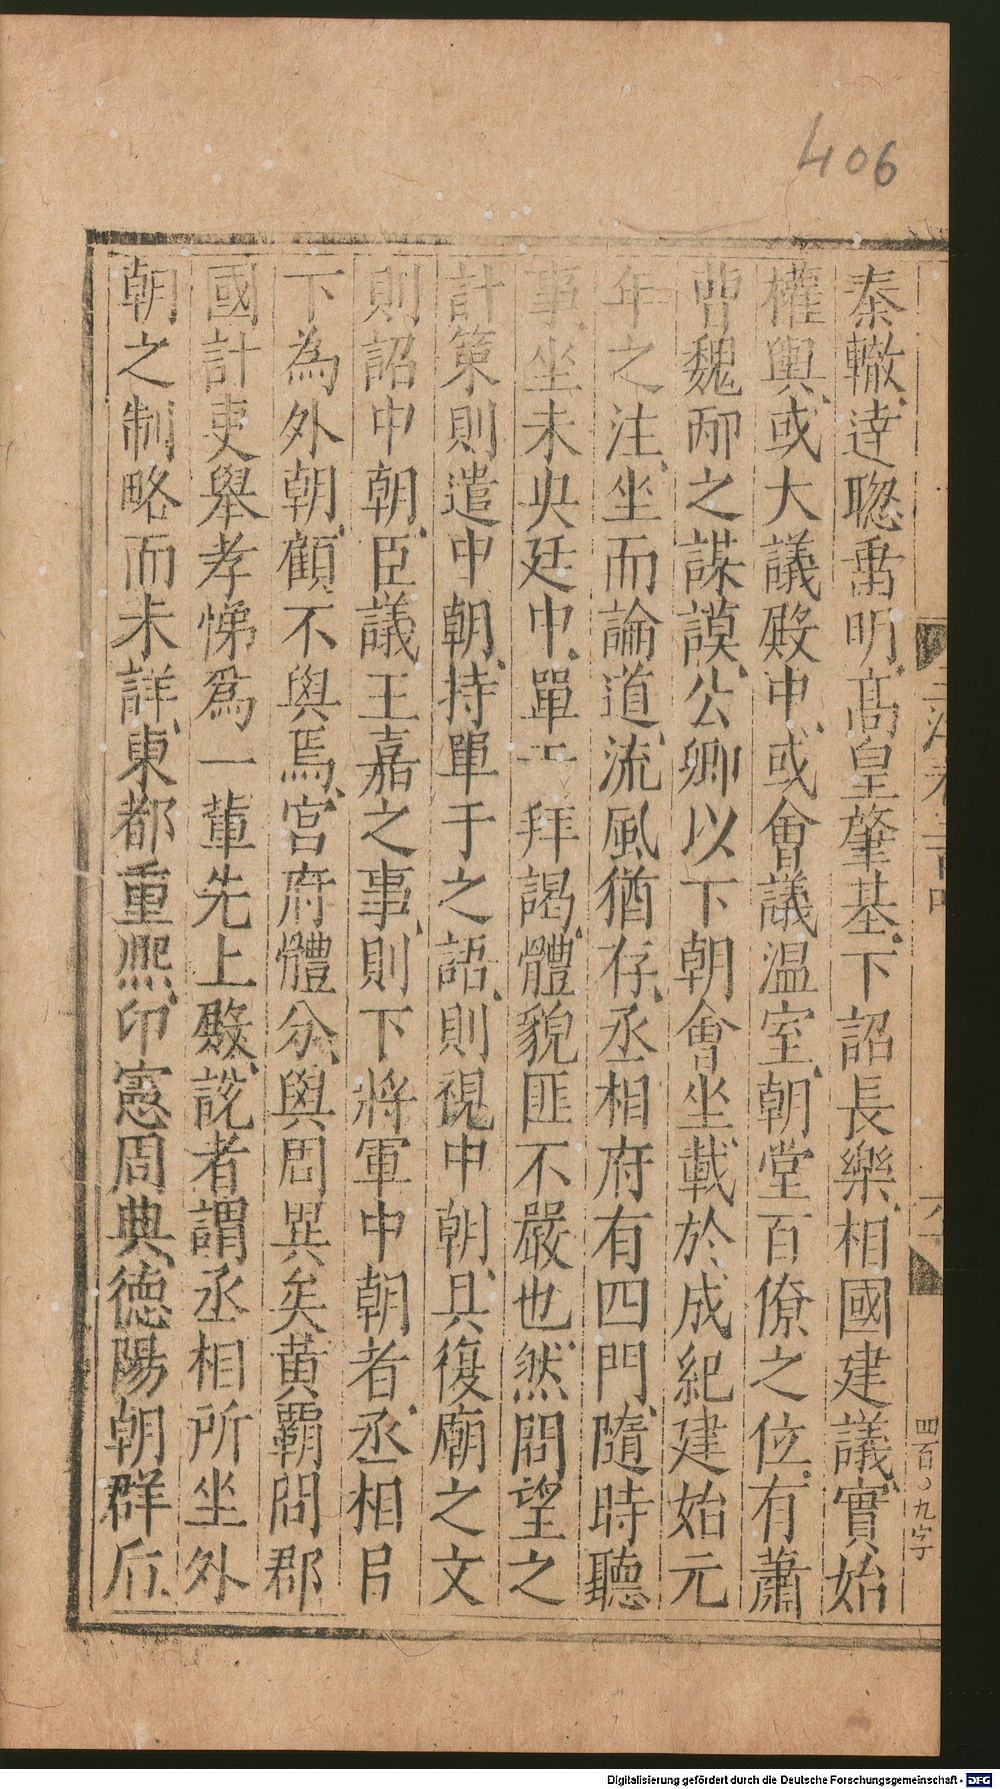 406
秦轍達聦焘明髙皇肇基下詔長樂相國建議實始
權輿或大議殿中或會議温室朝堂百僚之位有蕭
曺魏邴之謀謨公卿以下朝會坐載於成紀建始元
年之注坐而論道流風猶存丞相府有四門隨時聽
事坐未央廷中單于拜謁體貌匪不嚴也然問望之
計策則遣中朝持單于之語則視中朝具復廟之文
則詔中朝臣議王嘉之事則下將軍中朝者丞相㠯
下為外朝顧不與焉宫府體分與周異矣黄霸問郡
國計吏舉孝悌爲一輩先上殿說者謂丞相所坐外
朝之制略而未詳東都重熈卬憲周典德陽朝群后
四百〇九字
Digitalisierung gefördert durch die Deutsche Forschungsgemeinschaft - DFG